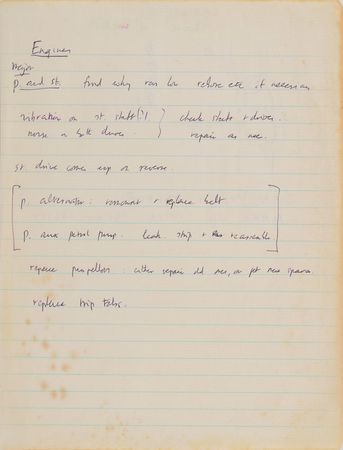 Engines
Major
p. and st. find why run low rebore etc if necessary
vibration on st shaft(?) } check shafts + drives.
noise in both drives. } repair as nec.
st drive comes up on reverse.
[p. alternator: remount + replace belt
p. aux petrol pump. leak strip + reassemble]
replace propellors: either repair old ones, or get new spares
replace trip tabs.